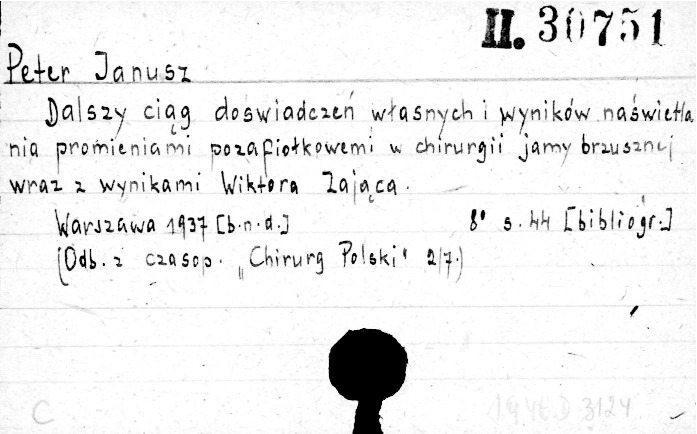 II. 30751
Peter Janusz
Dalszy ciąg doświadczeń własnych i wyników naświetla
nia promieniami pozafiołkowemi w chirurgii jamy brzusznej
wraz z wynikami Wiktora Zająca.
Warszawa 1937 [b.n.d.] 8° s. 44 [bibliogr.]
(Odb. z czasop. „Chirurg Polski" 2/7.)
C 1946 D 3124